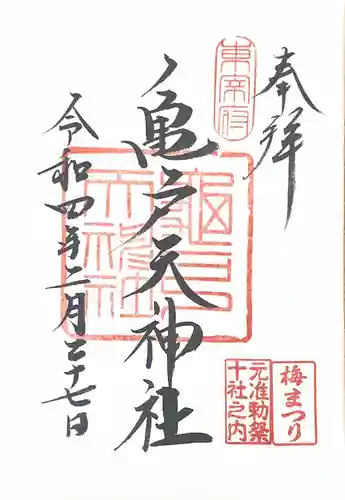 奉拝
東宰府
亀戸天神社
亀戸天神社
令和四年二月二十七日
梅まつり
元准勅祭
十社之内